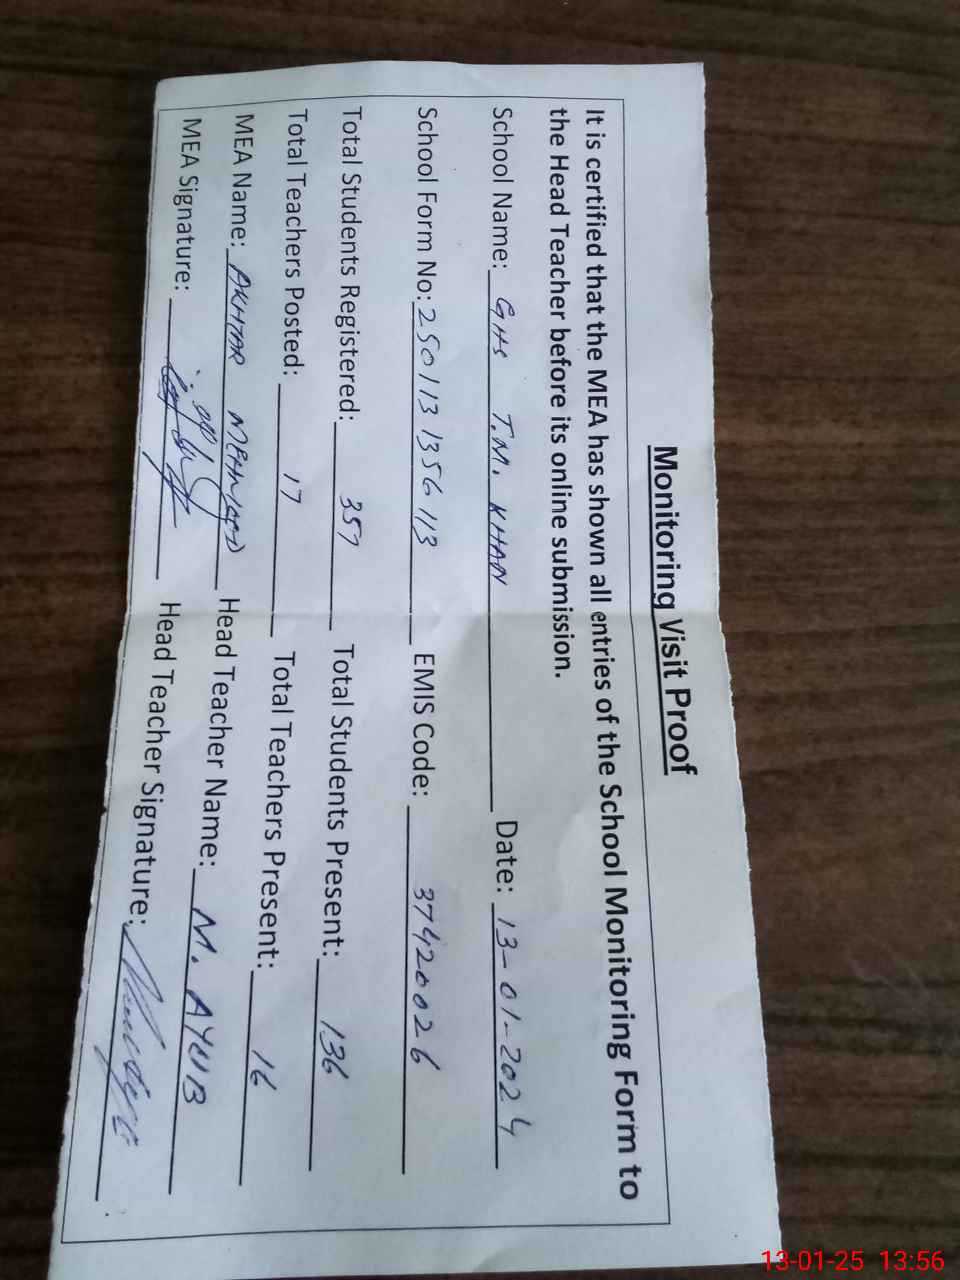 Monitoring Visit Proof
It is certified that the MEA has shown all entries of the School Monitoring Form to
the Head Teacher before its online submission.
School Name: GHS T.M. KHAN Date: 13-01-2024
School Form No: 250113 1356 113 EMIS Code: 37420026
Total Students Registered: 357 Total Students Present: 136
Total Teachers Posted: 17 Total Teachers Present: 16
MEA Name: AKHTAR MEHMOOD Head Teacher Name: M. AYUB
MEA Signature: Head Teacher Signature:
13-01-25 13:56